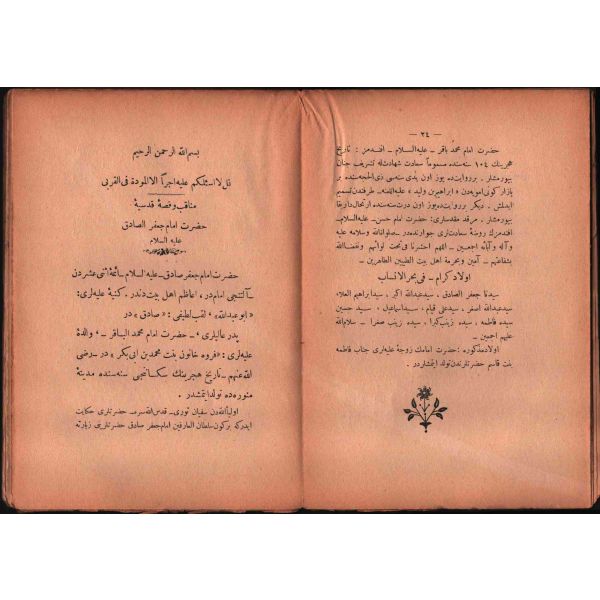 — ٢٤ —
حضرت امام محمد باقر ـ عليه السلام ـ افندمز : تاريخ
هجرينك ١٠٤ سنه سنده مسموماً سعادت شهادتله تشريف جنان
بيورمشلر . بر روايتده يوز اون يدى سنه سى ذى الحجه سنده بر
بازار كونى امويه دن « ابراهيم بن وليد » عليه اللعنه ـ طرفندن تسميم
ايدلمش . ديكر بر روايتده يوز اون درت سنه سنده ارتحال دار بقا
بيورمشلر . مرقد مقدسلرى : حضرت امام حسن ـ عليه السلام ـ
افندمزك روضهٔ سعادتلرى جوارنده در ـ صلوات الله وسلامه عليه
وآله وآبائه اجمعين ـ اللهم احشرنا فى تحت لوائهم ونفعنا الله
بشفاعتهم ـ آمين وبحرمة اهل بيت الطيبين الطاهرين ـ
اولاد كرام ـ فى بحر الانساب
سيدنا جعفر الصادق ، سيد عبدالله اكبر ، سيد ابراهيم العلا،
سيد عبدالله اصغر ، سيد على ، سيد قيام ، سيد اسماعيل ، سيد حسين
سيده فاطمه ، سيده زينب كبرا ، سيده زينب صغرا ـ سلام الله
عليهم اجمعين ـ
اولاد مذكوره : حضرت امامك زوجهٔ عليه لرى جناب فاطمه
بنت قاسم حضرتلرندن تولد ايتمشلردر .
بسم الله الرحمن الرحيم
قل لا اسئلكم عليه اجراً الا المودة فى القربى
مناقب وقصهٔ قدسيهٔ
حضرت امام جعفر الصادق
عليه السلام
حضرت امام جعفر صادق ـ عليه السلام ـ ائمهٔ اثنى عشردن
ـ آلتنجى امام در ، اعاظم اهل بيت دندر . كنيهٔ عليه لرى :
« ابو عبدالله » ، لقب لطيفى : « صادق » در
پدر عاليلرى ، ـ حضرت امام محمد الباقر ـ ، والدهٔ
عليه لرى : « فروه خاتون بنت محمد بن ابى بكر » در ـ رضى
الله عنهم ـ تاريخ هجرينك سكساننجى سنه سنده مدينهٔ
منوره ده تولد ايتمشدر .
اولياء الله دن سفيان ثورى ـ قدس الله سره ـ حضرتلرى حكايت
ايدركه بركون سلطان العارفين امام جعفر صادق حضرتلرينى زيارته